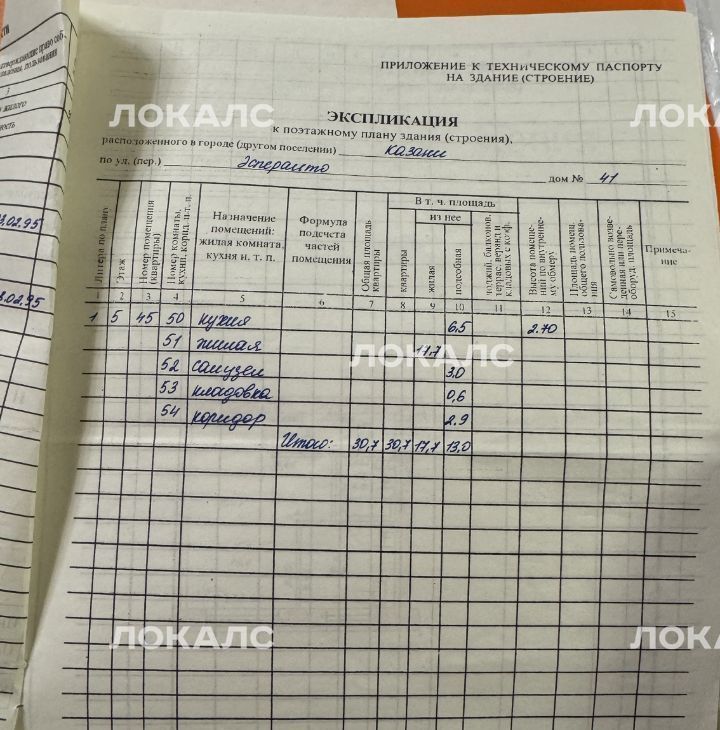 ПРИЛОЖЕНИЕ К ТЕХНИЧЕСКОМУ ПАСПОРТУ
НА ЗДАНИЕ (СТРОЕНИЕ)
ЛОКАЛС
ЛОКАЛС
ЭКСПЛИКАЦИЯ
к поэтажному плану здания (строения),
расположенного в городе (другом поселении) Казани
по ул. (пер.) Эсперанто дом № 41
Литера по плану
Этаж
Номер помещения (квартиры)
Номер комнаты, кухни, корид. и т. п.
Назначение помещений: жилая комната, кухня и т. п.
Формула подсчета частей помещения
Общая площадь квартиры
В т. ч. площадь
квартиры
из нее
жилая
подсобная
лоджий, балконов, террас, веранд и кладовых с коэф.
Высота помещений по внутреннему обмеру
Площадь помещ. общего пользования
Самовольно возведенная или переоборуд. площадь
Примечание
1 2 3 4 5 6 7 8 9 10 11 12 13 14 15
1 5 45 50 кухня 6.5 2.70
51 жилая 17.7
ЛОКАЛС
52 санузел 3.0
53 кладовка 0,6
54 коридор 2.9
Итого: 30,7 30,7 17,7 13,0
ЛОКАЛС
ЛОКАЛС